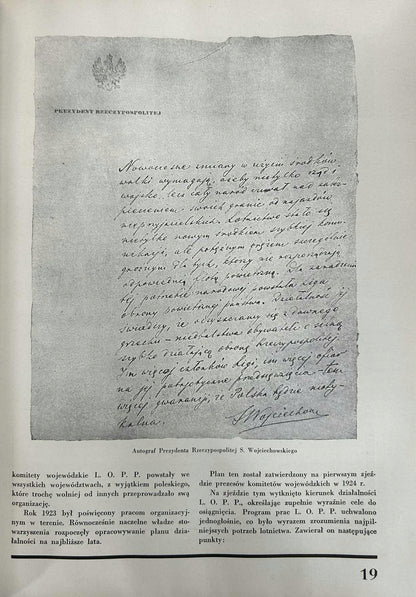 PREZYDENT RZECZYPOSPOLITEJ
Nowoczesne zmiany w użyciu środków
walki wymagają, ażeby nietylko rząd i
wojsko, lecz cały naród czuwał nad zabez-
pieczeniem swoich granic od najazdów
nieprzyjacielskich. Lotnictwo stało się
nietylko nowym środkiem szybkiej komu-
nikacji, ale potężnym orężem szczególnie
groźnym dla tych, którzy nie rozporządzają
odpowiednią flotą powietrzną. Dla zaradzenia
tej potrzebie narodowej powstała Liga
obrony powietrznej państwa. Działalność jej
świadczy, że otrząsamy się z dawnego
grzechu – niedbalstwa obywateli o silną,
szybko działającą obronę Rzeczypospolitej.
Im więcej członków Ligi, im więcej ofiar
na jej patrjotyczne przedsięwzięcia – tem
więcej gwarancji, że Polska będzie niety-
kalna.
SWojciechow
Autograf Prezydenta Rzeczypospolitej S. Wojciechowskiego
komitety wojewódzkie L. O. P. P. powstały we
wszystkich województwach, z wyjątkiem poleskiego,
które trochę wolniej od innych przeprowadzało swą
organizację.
Rok 1923 był poświęcony pracom organizacyj-
nym w terenie. Równocześnie naczelne władze sto-
warzyszenia rozpoczęły opracowywanie planu dzia-
łalności na najbliższe lata.
Plan ten został zatwierdzony na pierwszym zjeź-
dzie prezesów komitetów wojewódzkich w 1924 r.
Na zjeździe tym wytknięto kierunek działalności
L. O. P. P., określając zupełnie wyraźnie cele do
osiągnięcia. Program prac L. O. P. P. uchwalono
jednogłośnie, co było wyrazem zrozumienia najpil-
niejszych potrzeb lotnictwa. Zawierał on następujące
punkty:
19